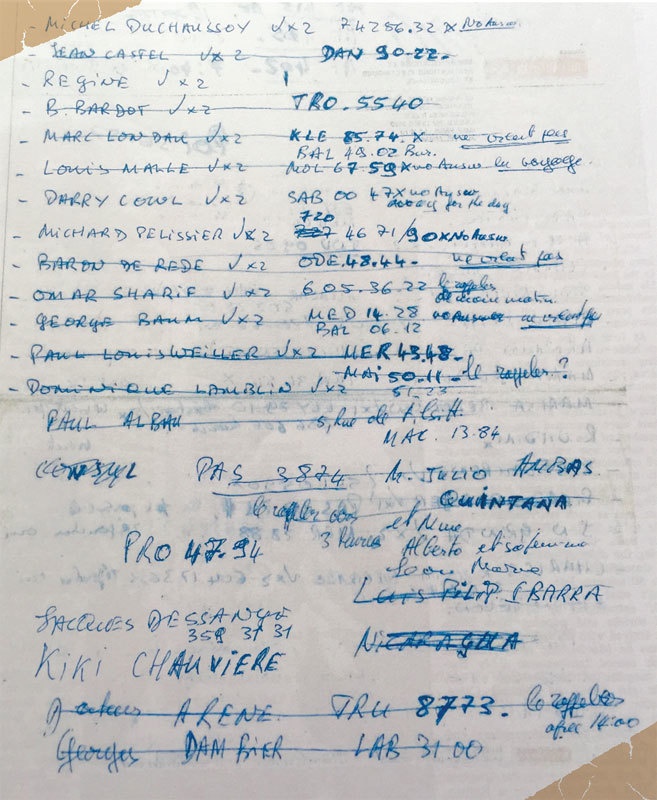 - MICHEL DUCHAUSSOY √x2 74286.32 x No Answ.
- JEAN CASTEL √x2 DAN 90-22-
- REGINE √x2
- B. BARDOT √x2 TRO. 5540
- MARC LONDAU √x2 KLE 85.74. X ne vient pas
BAL 49.02 Bur.
- LOUIS MALLE √x2 MOL 67 59 x no Answ en voyage.
- DARRY COWL √x2 SAB 00 47 x no Answ
away for the day
720
- MICHARD PELISSIER √x 46 71/90 x No Answ
- BARON DE REDE √x2 ODE.48.44- ne vient pas
- OMAR SHARIF √x2 605.36.22 le rappeler
demain matin.
- GEORGE BAUM √x2 MED 14.28 no Answer ne vient pas
BAL 06.12
- PAUL LOUIS WEILLER √x2 MER 43.48-
MAI 50.11- le rappeler ?
- DOMINIQUE LAMBLIN √x2 51.23
PAUL ALBAU 5, Rue de Tilsitt
MAC. 13.84
CONSUL PAS 3874 M. JULIO AMBAS
QUINTANA
le rappeler dans
3 heures
et Mme
PRO 47.94 Alberto et sa femme
Jean Marie
Luis FILIP EBARRA
JACQUES DESSANGE
359 31 31
NICARAGUA
KIKI CHAUVIERE
ARENE TRU 8773. le rappeler
après 14:00
Georges DAMBIER LAB 31.00